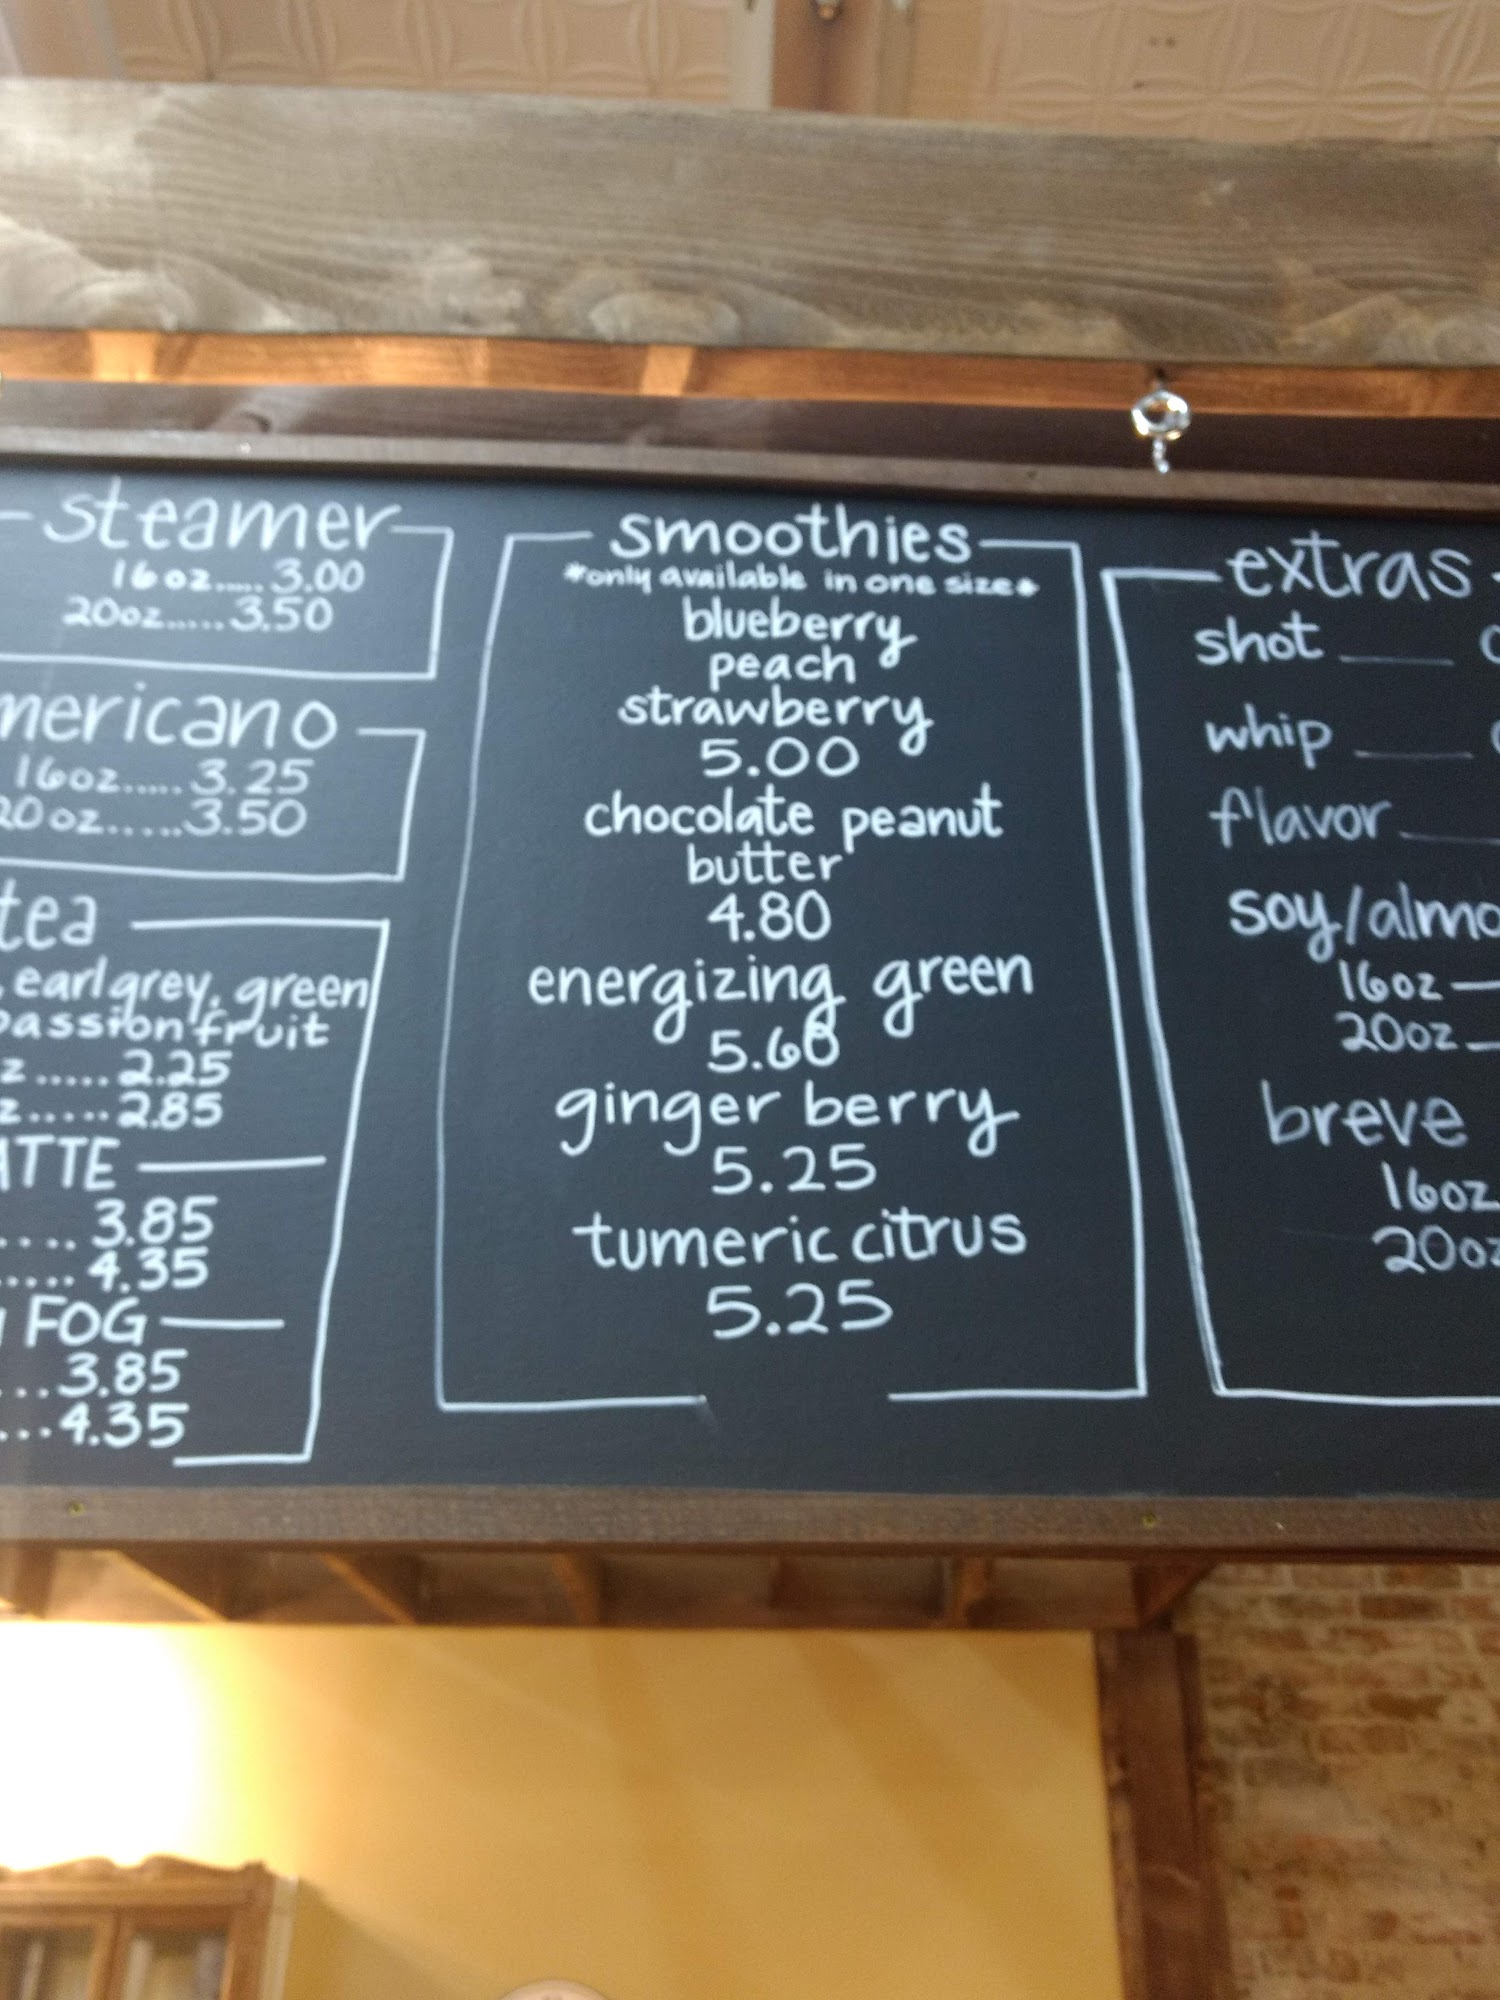 steamer
16oz.....3.00
20oz.....3.50
mericano
16oz.....3.25
20oz.....3.50
tea
earl grey, green
passionfruit
z.....2.25
z.....2.85
ATTE
....3.85
.....4.35
FOG
...3.85
...4.35
smoothies
*only available in one size*
blueberry
peach
strawberry
5.00
chocolate peanut
butter
4.80
energizing green
5.60
ginger berry
5.25
tumeric citrus
5.25
extras
shot
whip
flavor
soy/almo
16oz
20oz
breve
16oz
20oz